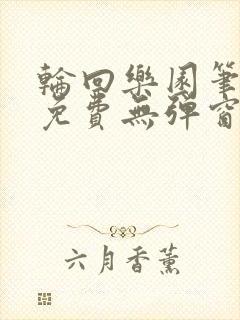 輪回樂園筆
免費無彈窗
六月香薰